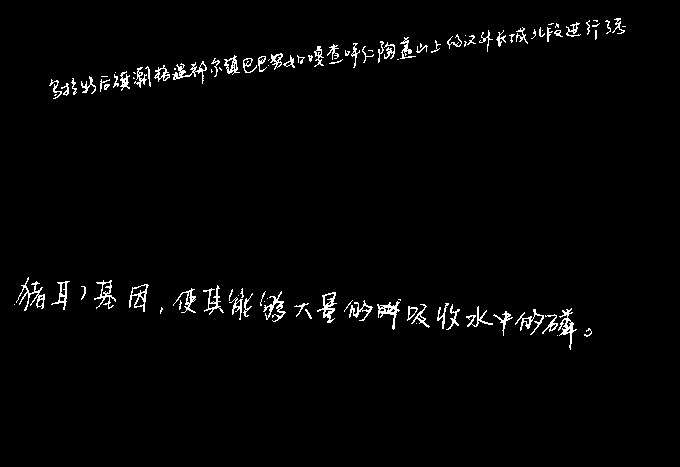 乌拉特后旗潮格温都尔镇巴巴努如嘎查呼仁陶盖山上的汉外长城北段进行了
猪耳基因，使其能够大量的吸收水中的磷。